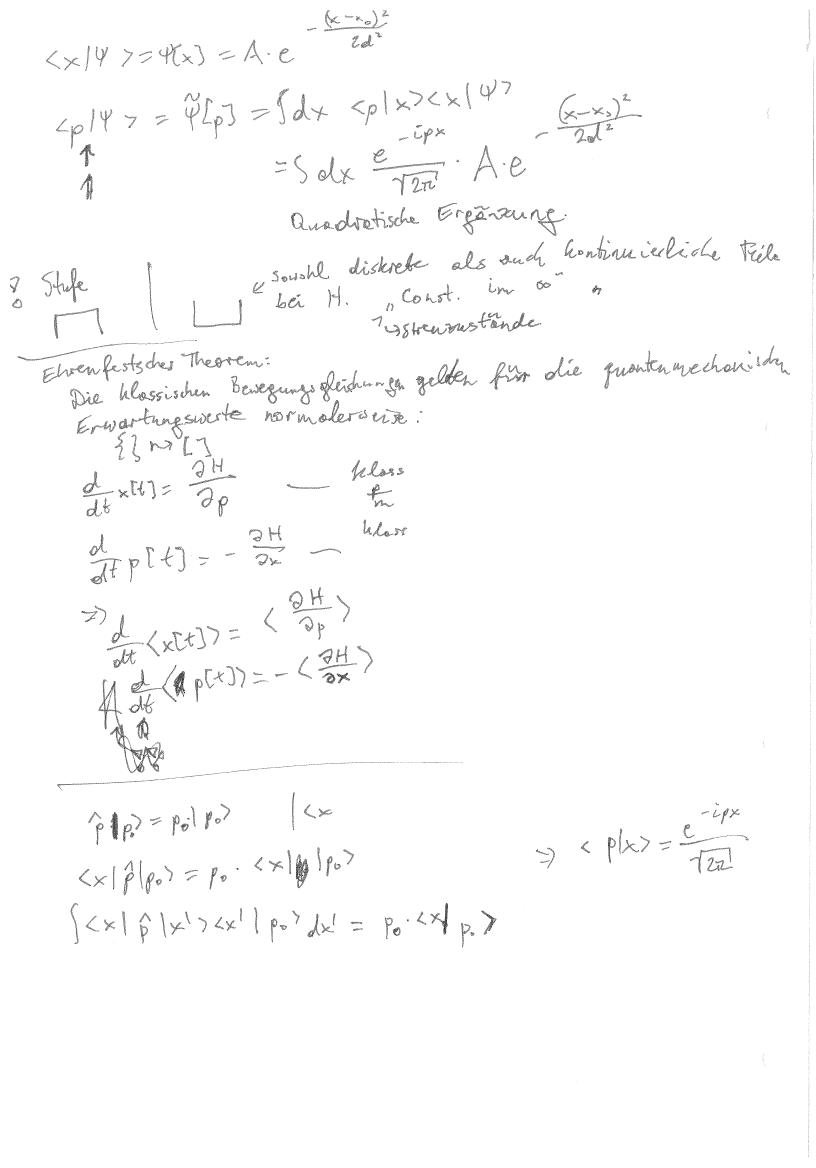 <x|Ψ> = Ψ[x] = A·e^{-(x-x₀)²/2d²}
<p|Ψ> = Ψ̃[p] = ∫dx <p|x><x|Ψ>
= ∫dx e^{-ipx}/√2π · A·e^{-(x-x₀)²/2d²}
Quadratische Ergänzung.
Stufe
Sowohl diskrete als auch kontinuierliche Teile
bei H. „Const. im ∞"
↳ Streuzustände
Ehrenfestsches Theorem:
Die klassischen Bewegungsgleichungen gelten für die quantenmechanischen
Erwartungswerte normalerweise:
{} ⇝ []
d/dt x[t] = ∂H/∂p — klass p/m
d/dt p[t] = -∂H/∂x — klass
=> d/dt <x[t]> = <∂H/∂p>
d/dt <p[t]> = -<∂H/∂x>
p̂|p₀> = p₀|p₀> |<x
<x|p̂|p₀> = p₀·<x|p₀> => <p|x> = e^{-ipx}/√2π
∫<x|p̂|x'><x'|p₀>dx' = p₀·<x|p₀>